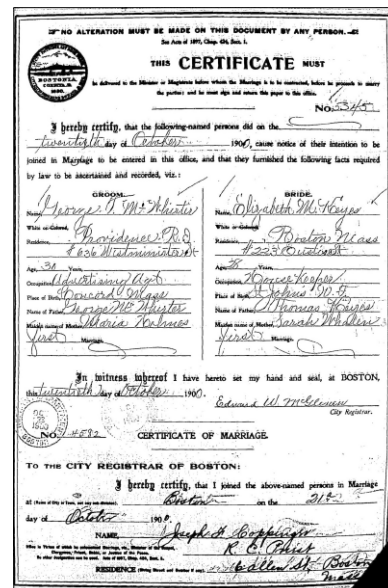 NO ALTERATION MUST BE MADE ON THIS DOCUMENT BY ANY PERSON.
See Acts of 1897, Chap. 424, Sect. 1.
THIS CERTIFICATE MUST
be delivered to the Minister or Magistrate before whom the Marriage is to be contracted, before he proceeds to marry
the parties: and he must sign and return this paper to this office.
BOSTONIA
CONDITA A.
1630.
No. 5345
I hereby certify, that the following-named persons did on the
twentieth day of October 1900, cause notice of their intention to be
joined in Marriage to be entered in this office, and that they furnished the following facts required
by law to be ascertained and recorded, viz.:
GROOM.
Name, George McWhirter
White or Colored,
Residence, Providence R.I.
#636 Westminster
Age, Years,
Occupation, Advertising Agt
Place of Birth, Concord Mass
Name of Father, George McWhirter
Maiden name of Mother, Maria Holmes
first Marriage.
BRIDE.
Name, Elizabeth M. Keyes
White or Colored,
Residence, Boston Mass
#223
Age, Years,
Occupation, House Keeper
Place of Birth, St Johns N.F.
Name of Father, Thomas Keyes
Maiden name of Mother, Sarah Whalen
first Marriage.
In witness whereof I have hereto set my hand and seal, at BOSTON,
this twentieth day of October 1900.
Edward W. McGlenen
City Registrar.
No. 4582 CERTIFICATE OF MARRIAGE.
TO THE CITY REGISTRAR OF BOSTON:
I hereby certify, that I joined the above-named persons in Marriage
at Boston on the 21st
day of October 1900.
NAME, Joseph H. Coppinger
R. C. Priest
RESIDENCE Allen St. Boston
Mass